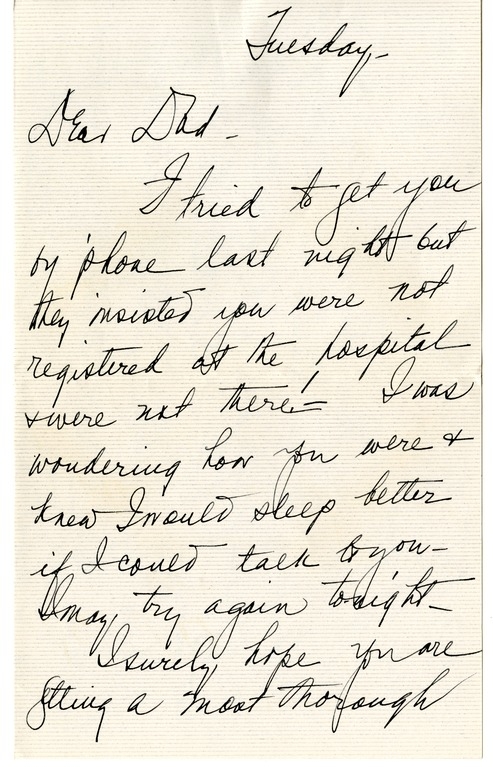 Tuesday-
Dear Dad-
I tried to get you
by 'phone last night but
they insisted you were not
registered at the hospital
& were not there!- I was
wondering how you were &
knew I would sleep better
if I could talk to you-
I may try again to-night-
I surely hope you are
getting a most thorough